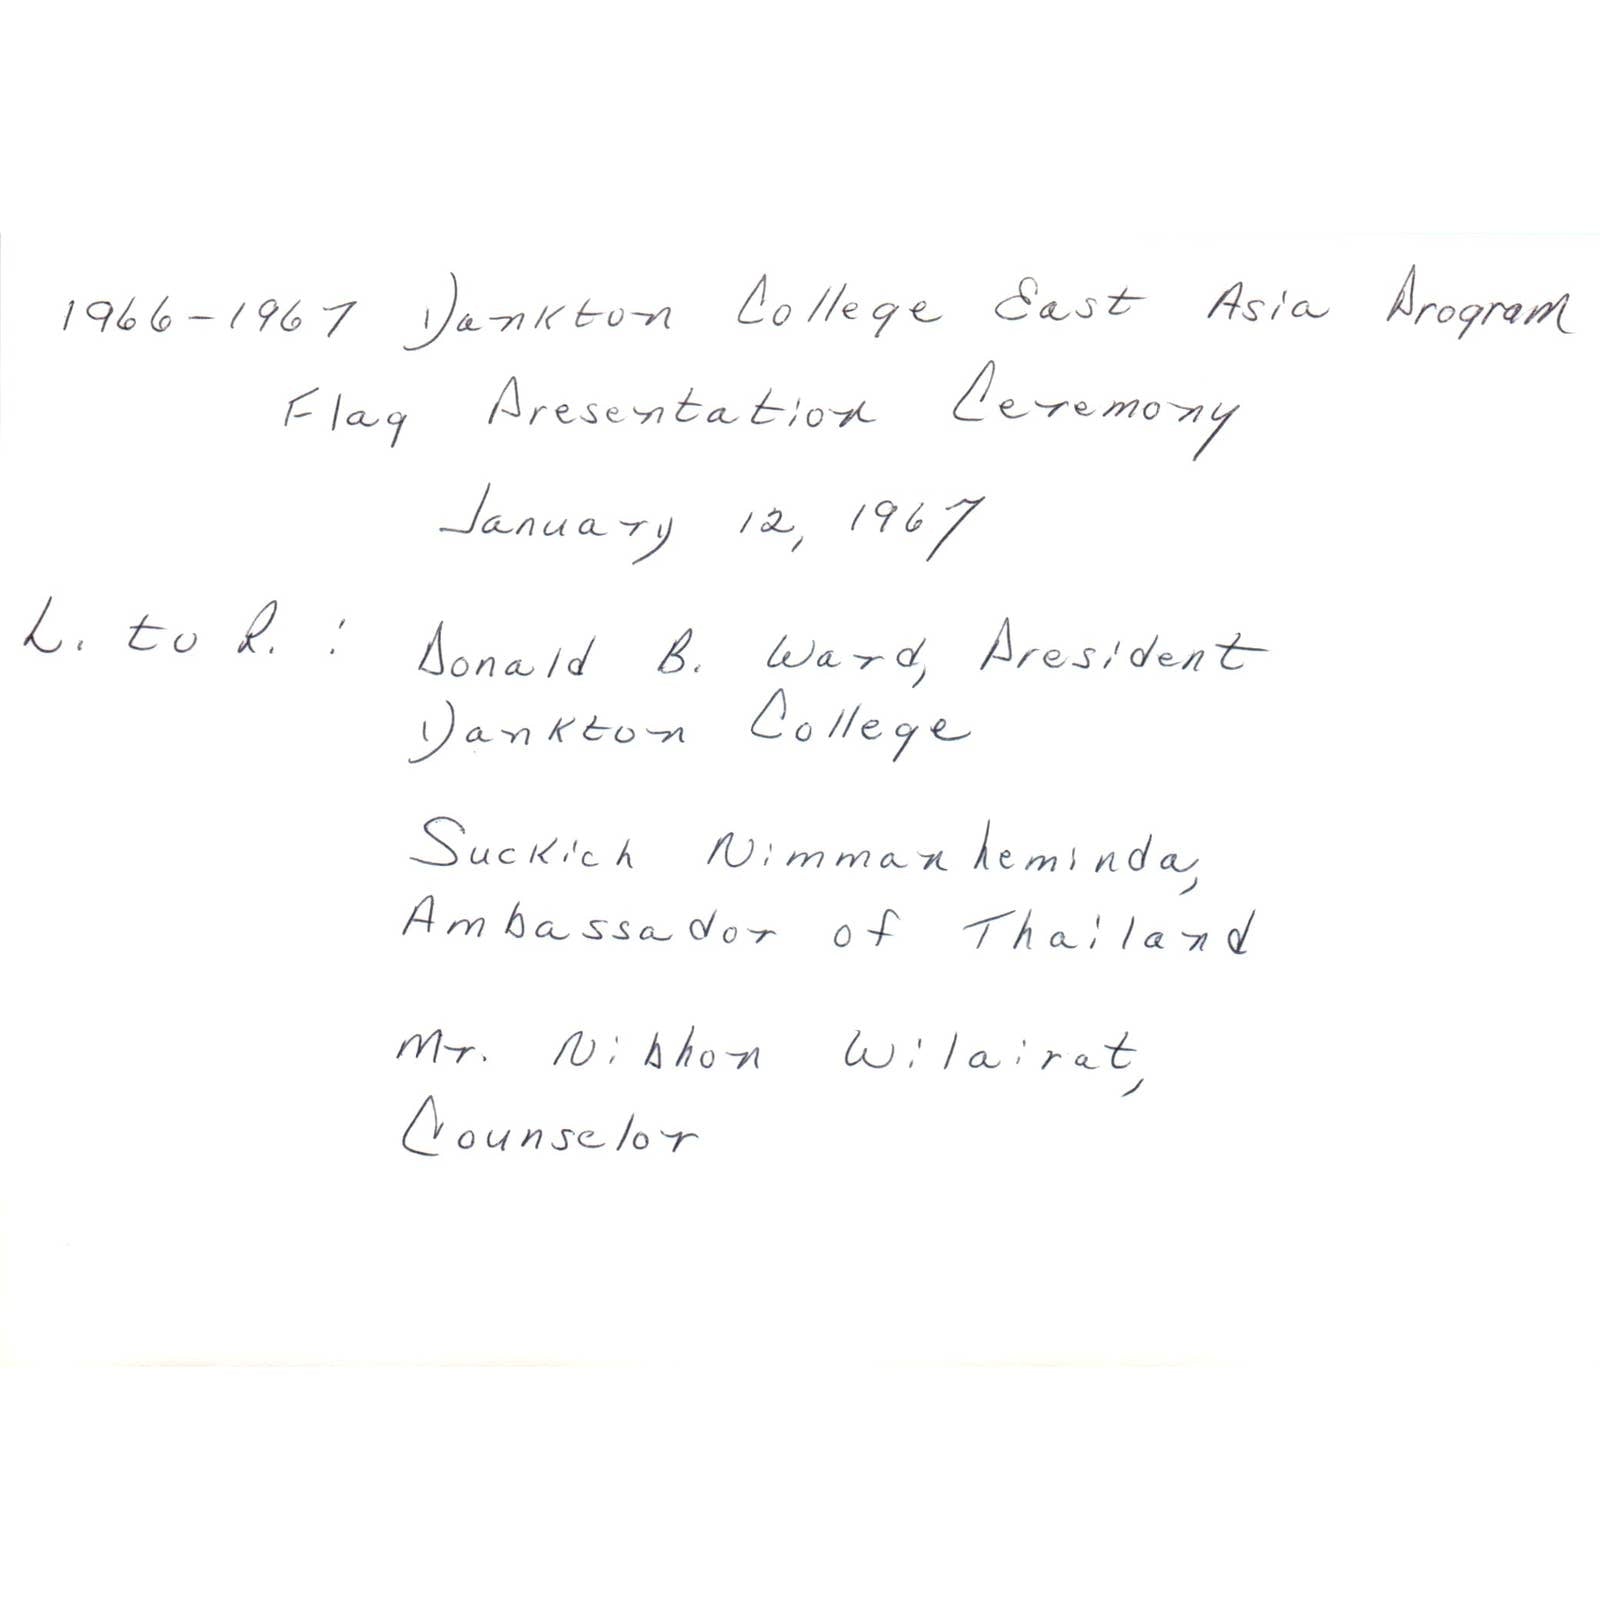 1966-1967 Yankton College East Asia Program
Flag Presentation Ceremony
January 12, 1967
L. to R. : Donald B. Ward, President
Yankton College
Suckich Nimmanheminda,
Ambassador of Thailand
Mr. Nibhon Wilairat,
Counselor